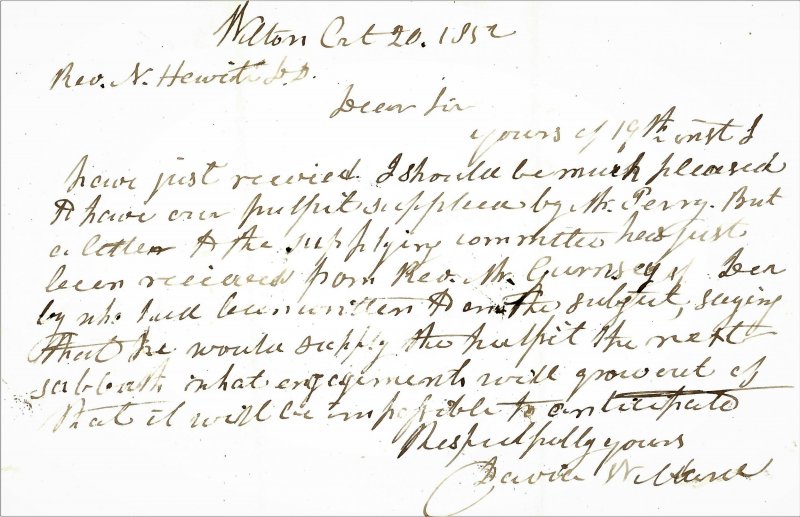 Wilton Oct 20. 1852
Rev. N. Hewit D.D.
Dear Sir
yours of 19th inst I
have just recvied. I should be much pleased
to have our pulpit supplied by Mr. Perry. But
a letter to the supplying committee has just
been received from Rev. Mr. Gurnsey of Der
by who had been written to on the subject, saying
that he would supply the pulpit the next
sabbath what engagements will grow out of
that it will be impossible to anticipate
Respectfully yours
David